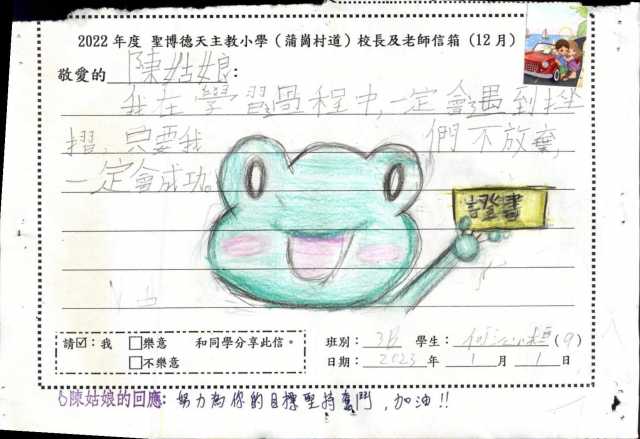 2022 年度 聖博德天主教小學（蒲崗村道）校長及老師信箱（12月）
敬愛的 陳姑娘：
我在學習過程中,一定會遇到挫
摺,只要我們不放棄,
一定會成功。
證書
請☑：我 □樂意 和同學分享此信。
□不樂意
班別： 學生： (9)
日期： 2023 年 1 月 1 日
陳姑娘的回應：努力為你的目標堅持奮鬥,加油!!